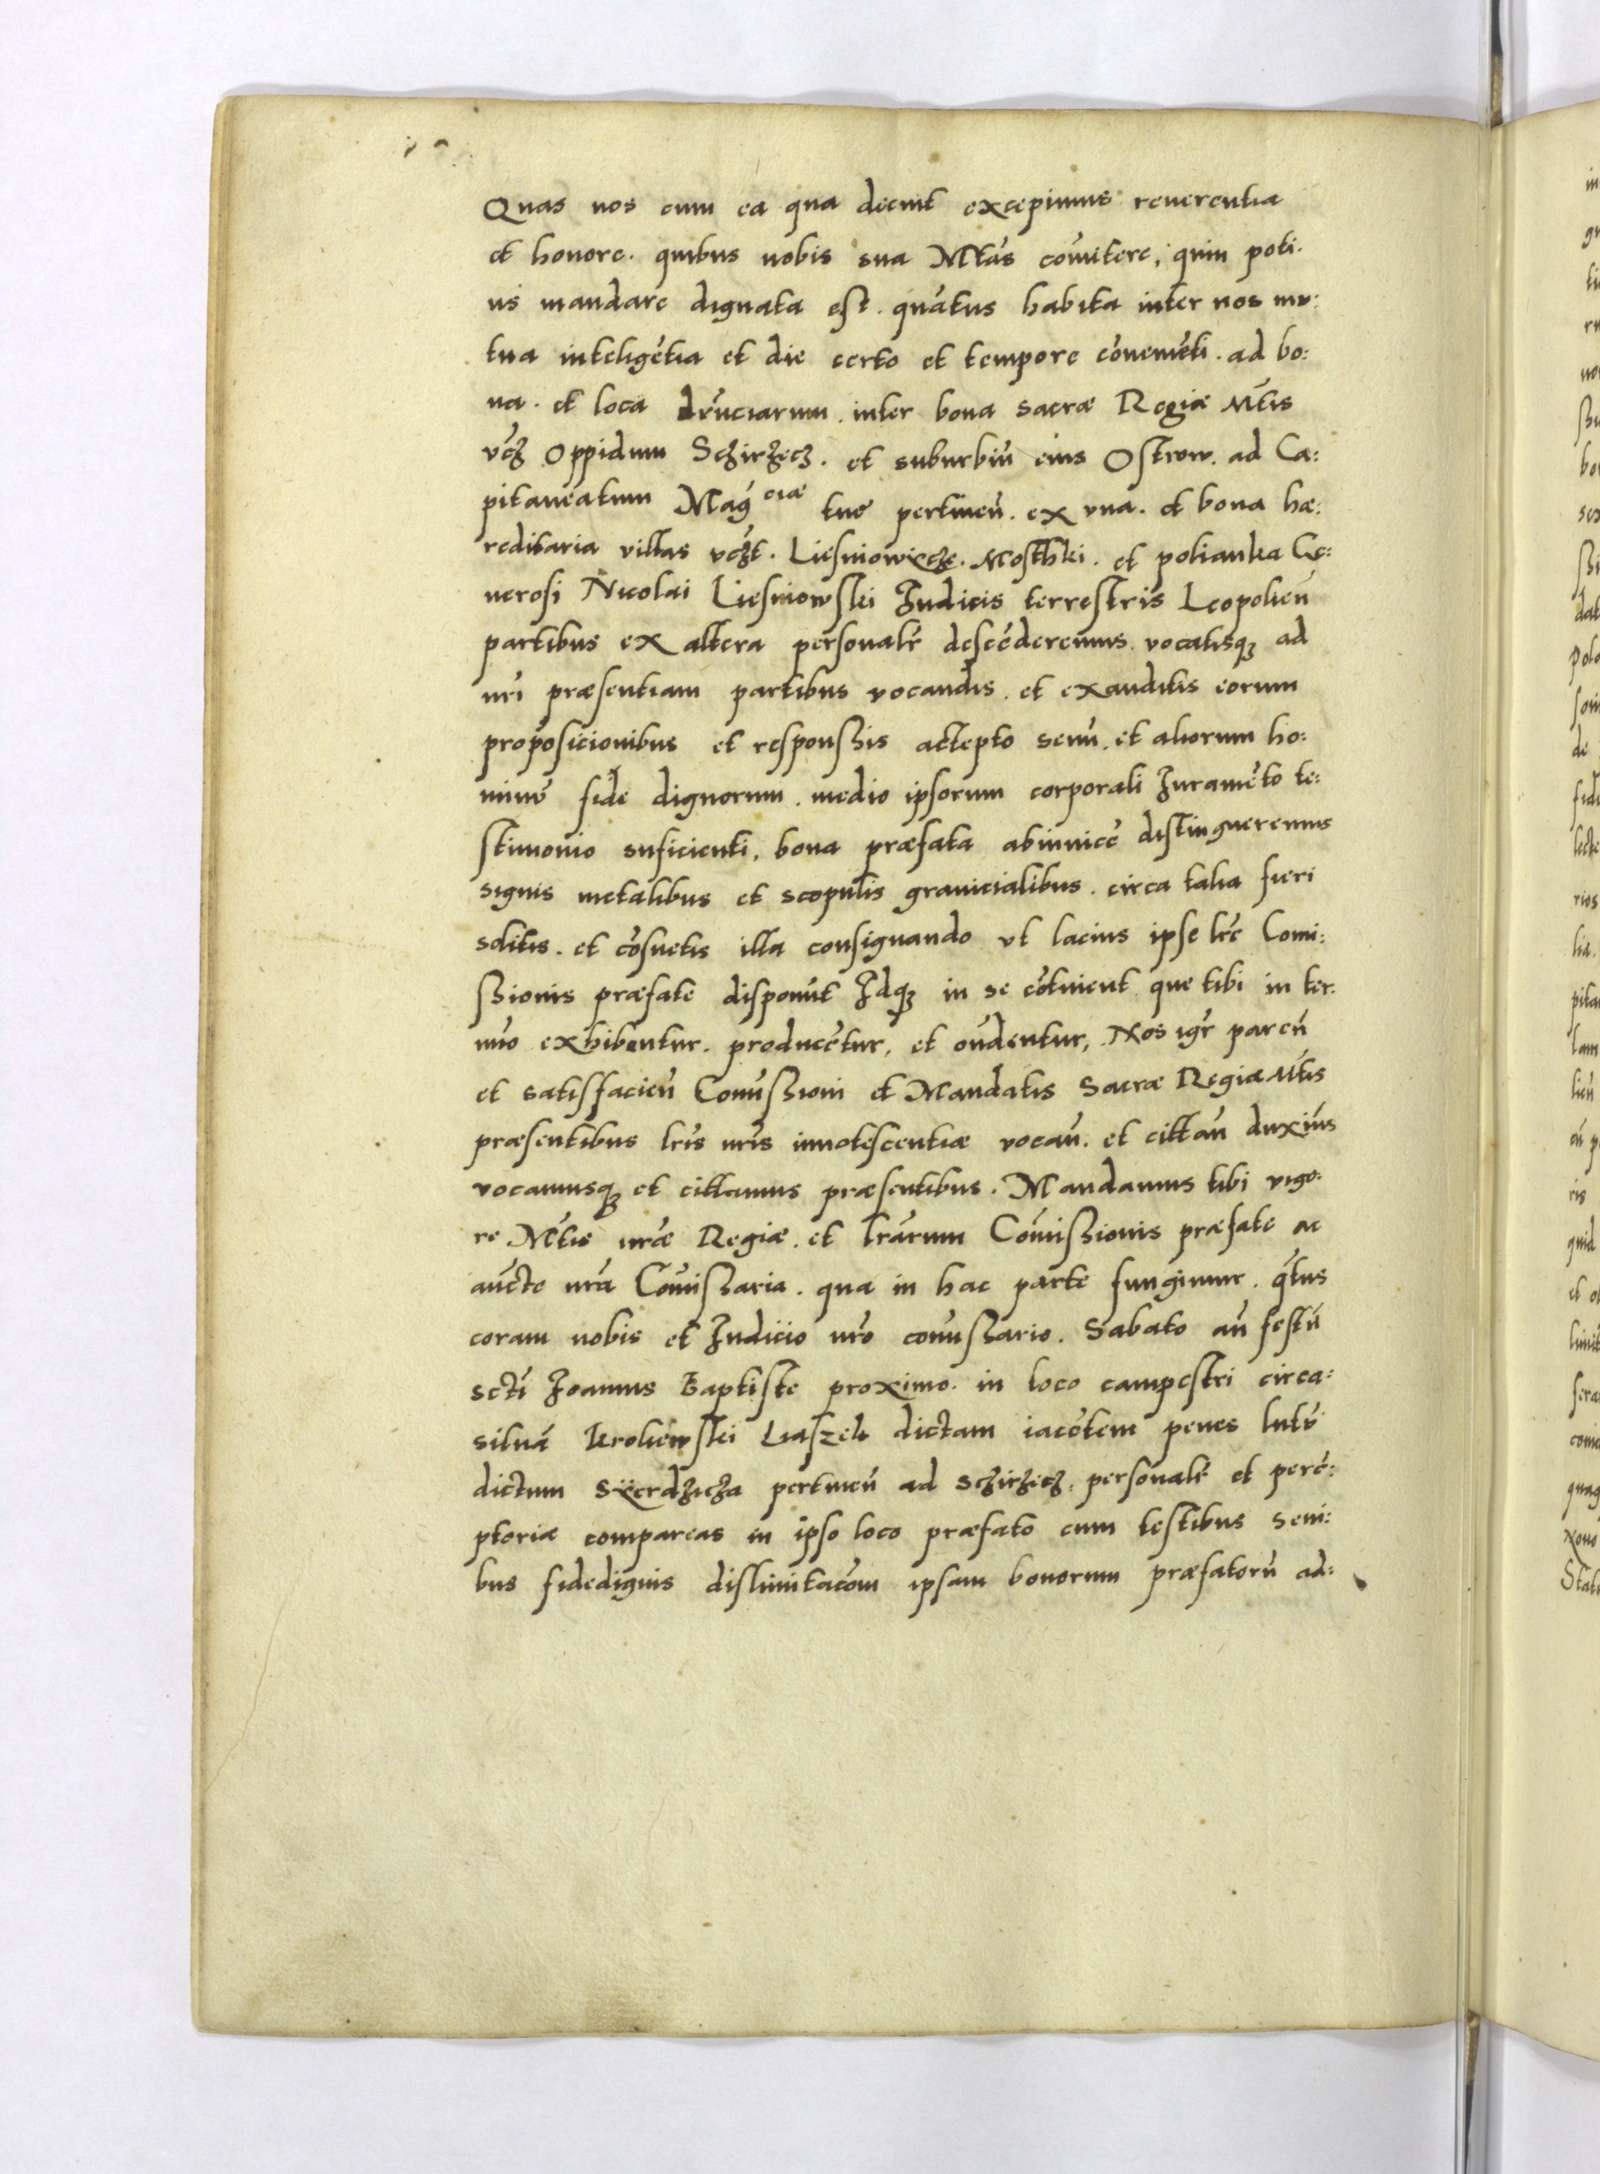 Quas nos cum ea qua decuit excepimus reuerentia
et honore. quibus nobis sua Mtas cōmitere, quin poti.
us mandare dignata est. quātus habita inter nos mu:
tua inteligētia et die certo et tempore cōueniēti. ad bo:
na. et loca inter bona sacræ Regiæ Mtis
vcz Oppidum Sczirzecz. et suburbiū eius Ostrow. ad Ca:
pitaneatum Mag ciæ tue pertineñ. ex vna. et bona hæ:
reditaria villas vczt. Liesniowycze. Mosthki. et polianka Ge:
nerosi Nicolai Liesniowski Iudicis terrestris Leopolieñ
partibus ex altera personalr descēderemus vocatisqꝫ ad
nrī præsentiam partibus vocandis. et exauditis eorum
proposicionibus et responssis accepto senū. et aliorum ho:
minū fide dignorum. medio ipsorum corporali Iuramēto te:
stimonio suficienti, bona præfata abinuicē distingueremus
signis metalibus et scopulis granicialibus. circa talia fieri
solitis. et cōsuetis illa consignando vt lacius ipse lre Comi:
ssionis præfate disponūt Idqꝫ in se cōtinent que tibi in ter:
mīo exhibentur. producētur, et oñdentur, Nos igr pareñ
et satisfacieñ Comissioni et Mandatis Sacræ Regiæ Mtis
præsentibus lris nris innotescentiæ vocañ. et cittañ duximus
vocamusqꝫ et cittamus præsentibus. Mandamus tibi vigo.
re Mtis nræ Regiæ. et lrarum Cōmissionis præfate ac
aucte nra Cōmissaria. qua in hac parte fungimur. qtus
coram nobis et Iudicio nro comissario. Sabato añ festū
scti Joannis Baptiste proximo. in loco campestri circa:
siluā Kroliewski Liaszek dictam iacētem penes lutū
dictum pertineñ ad Sczirzecz. personalr et perē:
ptoriæ compareas in ipso loco præfato cum testibus seni:
bus fidedignis dislimitacōm ipsam bonorum præfatorū ad: